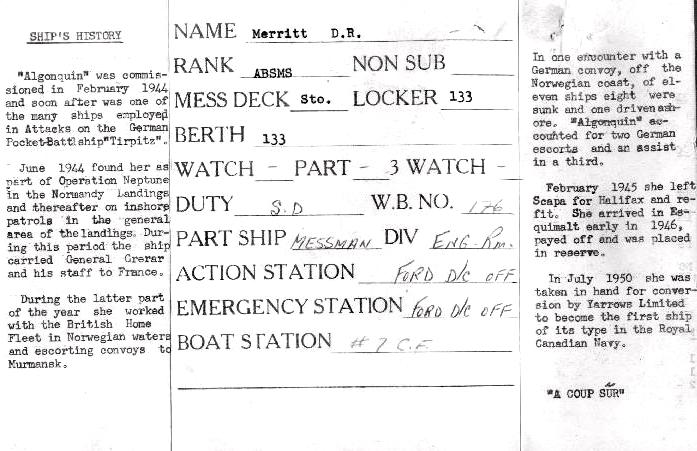 SHIP'S HISTORY
"Algonquin" was commis-
sioned in February 1944
and soon after was one of
the many ships employed
in Attacks on the German
Pocket-Battleship"Tirpitz".
June 1944 found her as
part of Operation Neptune
in the Normandy Landings
and thereafter on inshore
patrols in the general
area of the landings. Dur-
ing this period the ship
carried General Grerar
and his staff to France.
During the latter part
of the year she worked
with the British Home
Fleet in Norwegian waters
and escorting convoys to
Murmansk.
NAME Merritt D.R.
RANK ABSMS NON SUB
MESS DECK Sto. LOCKER 133
BERTH 133
WATCH - PART - 3 WATCH -
DUTY S.D W.B. NO. 176
PART SHIP MESSMAN DIV ENG. Rm.
ACTION STATION FORD D/C OFF
EMERGENCY STATION FORD D/C OFF
BOAT STATION # 7 C.F.
In one encounter with a
German convoy, off the
Norwegian coast, of el-
even ships eight were
sunk and one driven ash-
ore. "Algonquin" ac-
counted for two German
escorts and an assist
in a third.
February 1945 she left
Scapa for Halifax and re-
fit. She arrived in Es-
quimalt early in 1946,
payed off and was placed
in reserve.
In July 1950 she was
taken in hand for conver-
sion by Yarrows Limited
to become the first ship
of its type in the Royal
Canadian Navy.
"A COUP SÛR"